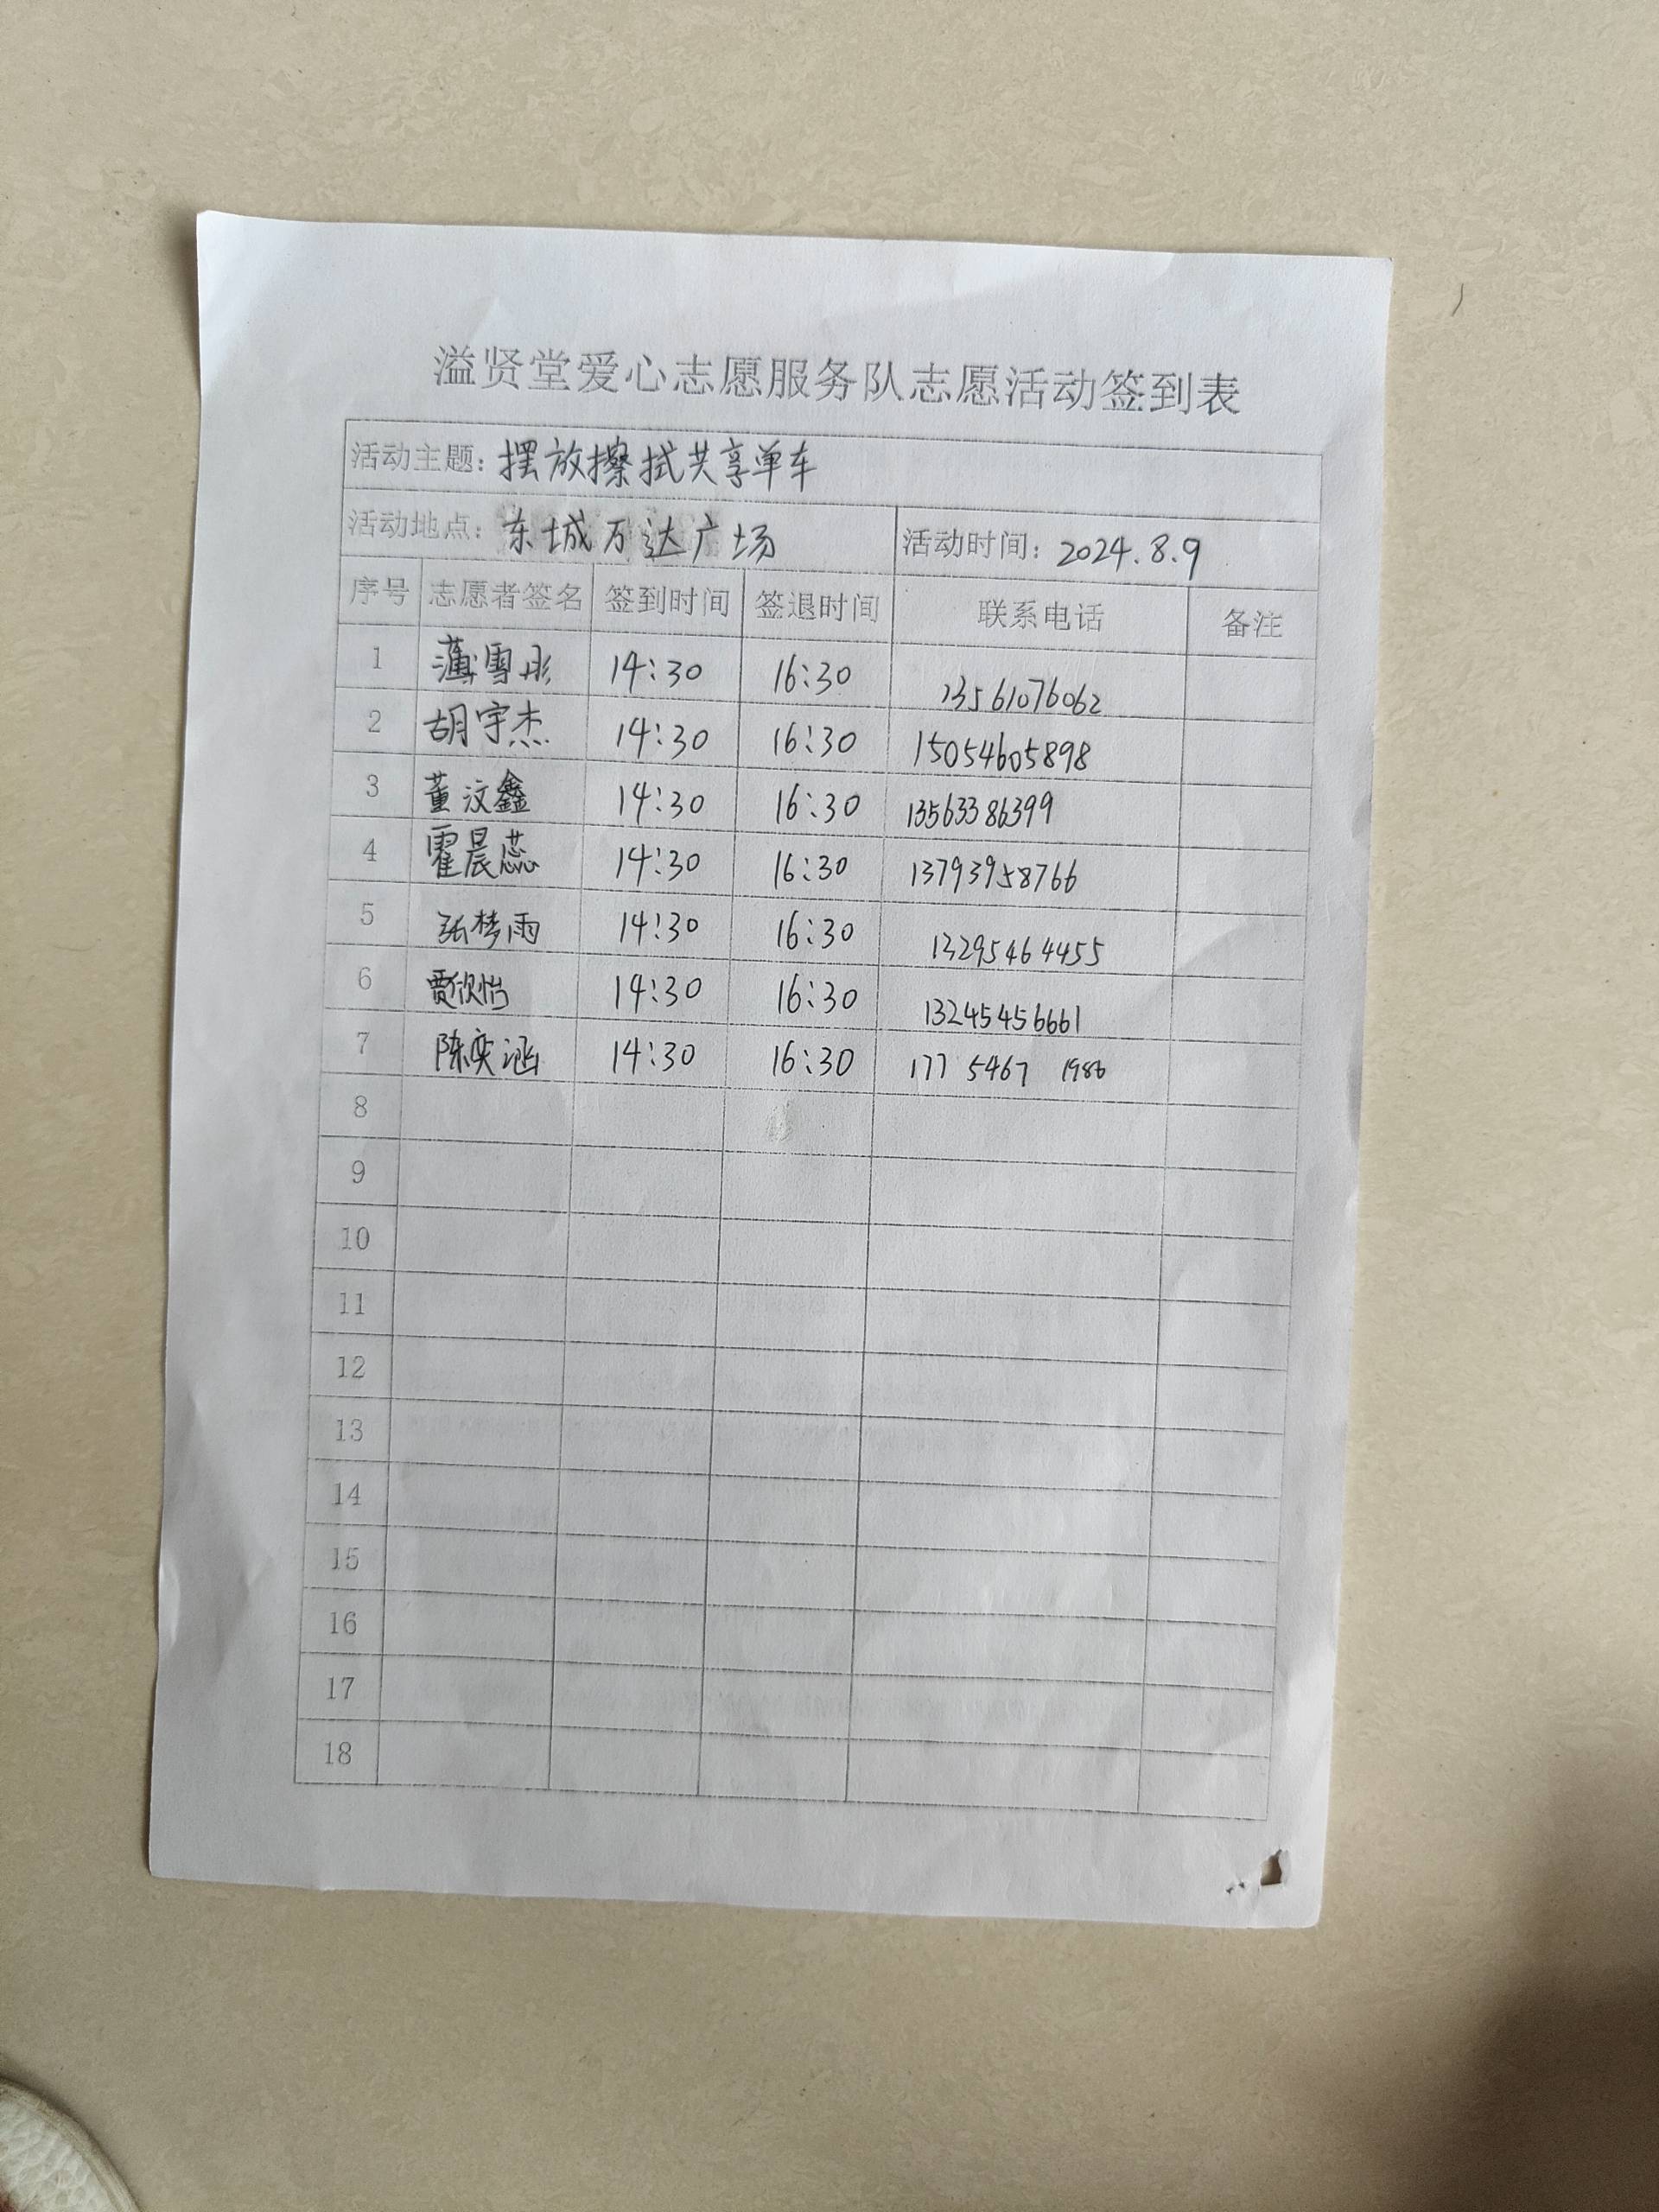 溢贤堂爱心志愿服务队志愿活动签到表
活动主题：摆放擦拭共享单车
活动地点：东城万达广场 活动时间：2024.8.9
序号 志愿者签名 签到时间 签退时间 联系电话 备注
1 薄雪彤 14:30 16:30 13561076062
2 胡宇杰 14:30 16:30 15054605898
3 董汶鑫 14:30 16:30 13563386399
4 霍晨蕊 14:30 16:30 13793958766
5 张梦雨 14:30 16:30 13295464455
6 贾欣怡 14:30 16:30 13245456661
7 陈奕涵 14:30 16:30 177 5467 1986
8
9
10
11
12
13
14
15
16
17
18